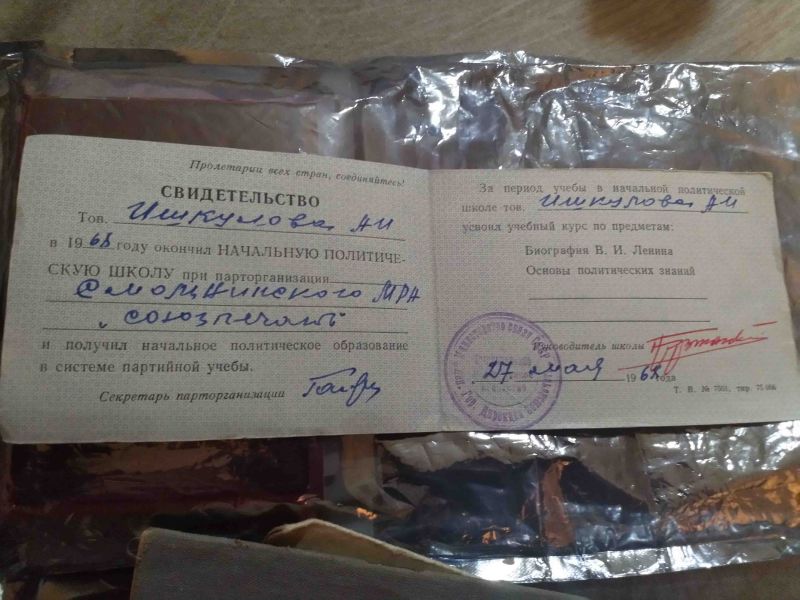 Пролетарии всех стран, соединяйтесь!
СВИДЕТЕЛЬСТВО
Тов. Ишкулова АИ
в 1968 году окончил НАЧАЛЬНУЮ ПОЛИТИЧЕ-
СКУЮ ШКОЛУ при парторганизации
"союзпечать"
и получил начальное политическое образование
в системе партийной учебы.
Секретарь парторганизации
За период учебы в начальной политической
школе тов. Ишкулова АИ
усвоил учебный курс по предметам:
Биография В. И. Ленина
Основы политических знаний
Руководитель школы
27 мая 1968 года
Т. В. № 7501, тир. 75 000.
Министерство связи СССР